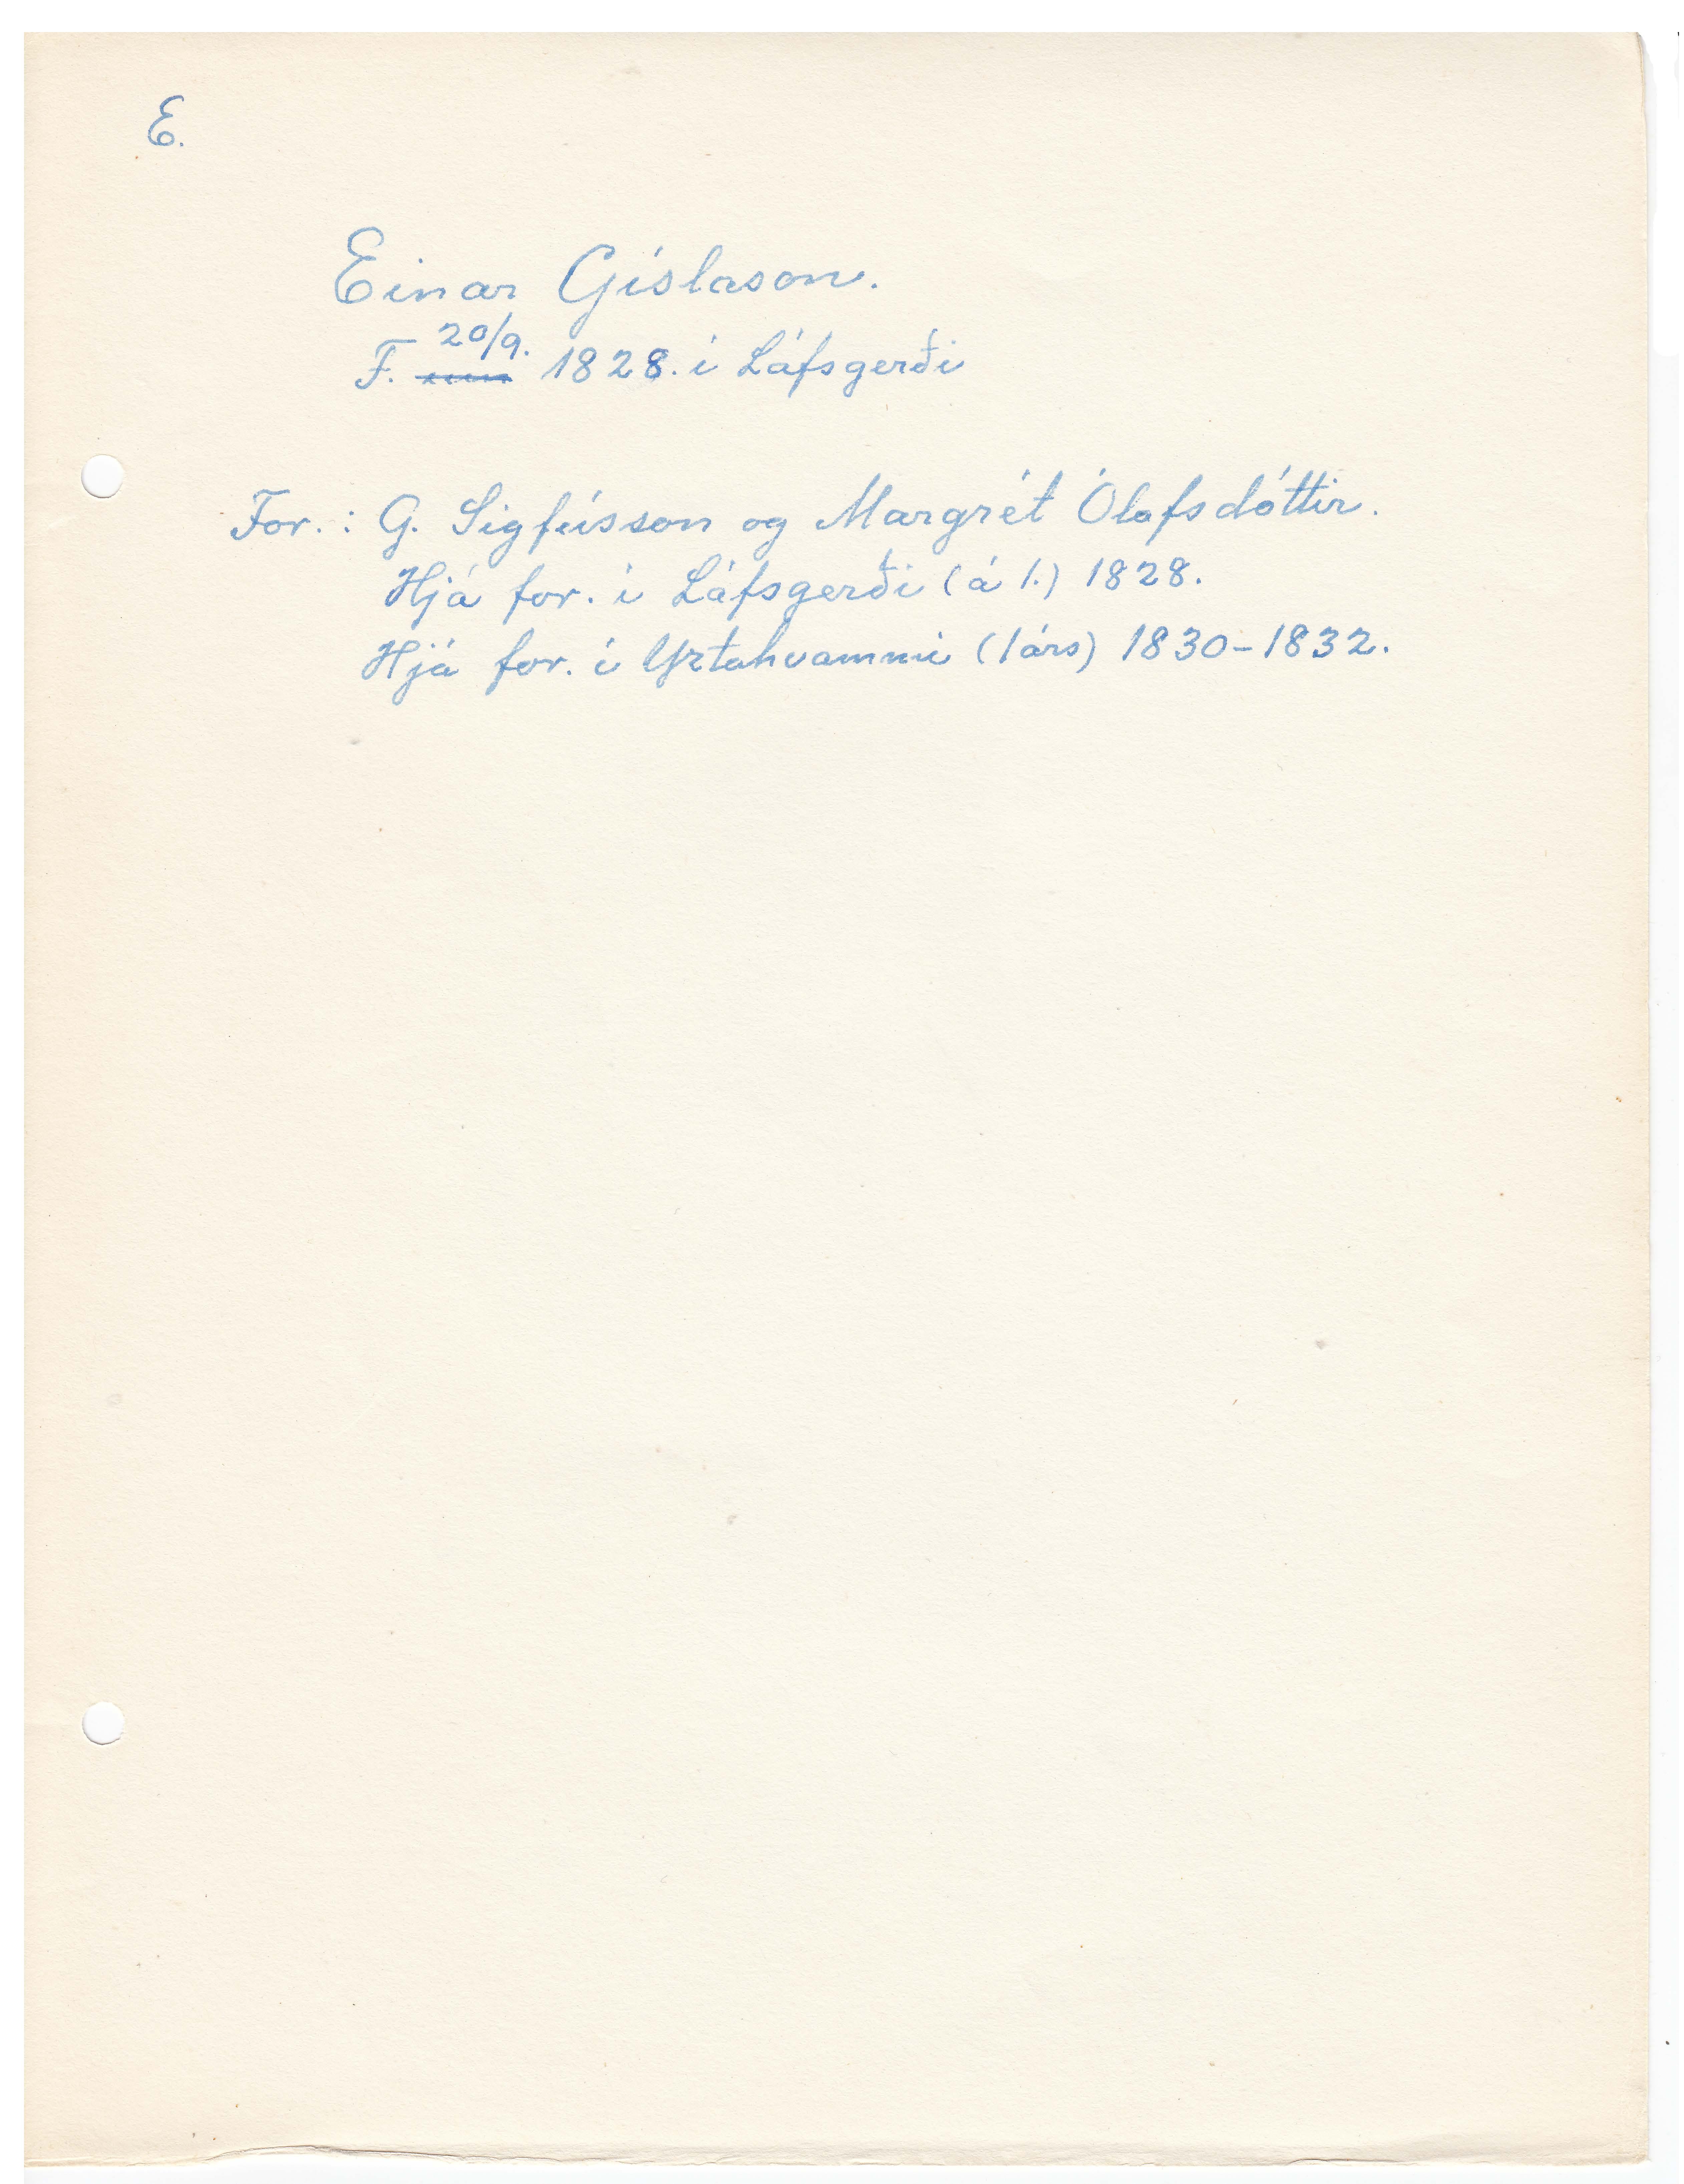 E.
Einar Gíslason.
20/9.
F. 1828. í Láfsgerði
For. : G. Sigfússon og Margrét Ólafsdóttir.
Hjá for. í Láfsgerði (á 1.) 1828.
Hjá for. í Yztahvammi (1árs) 1830-1832.